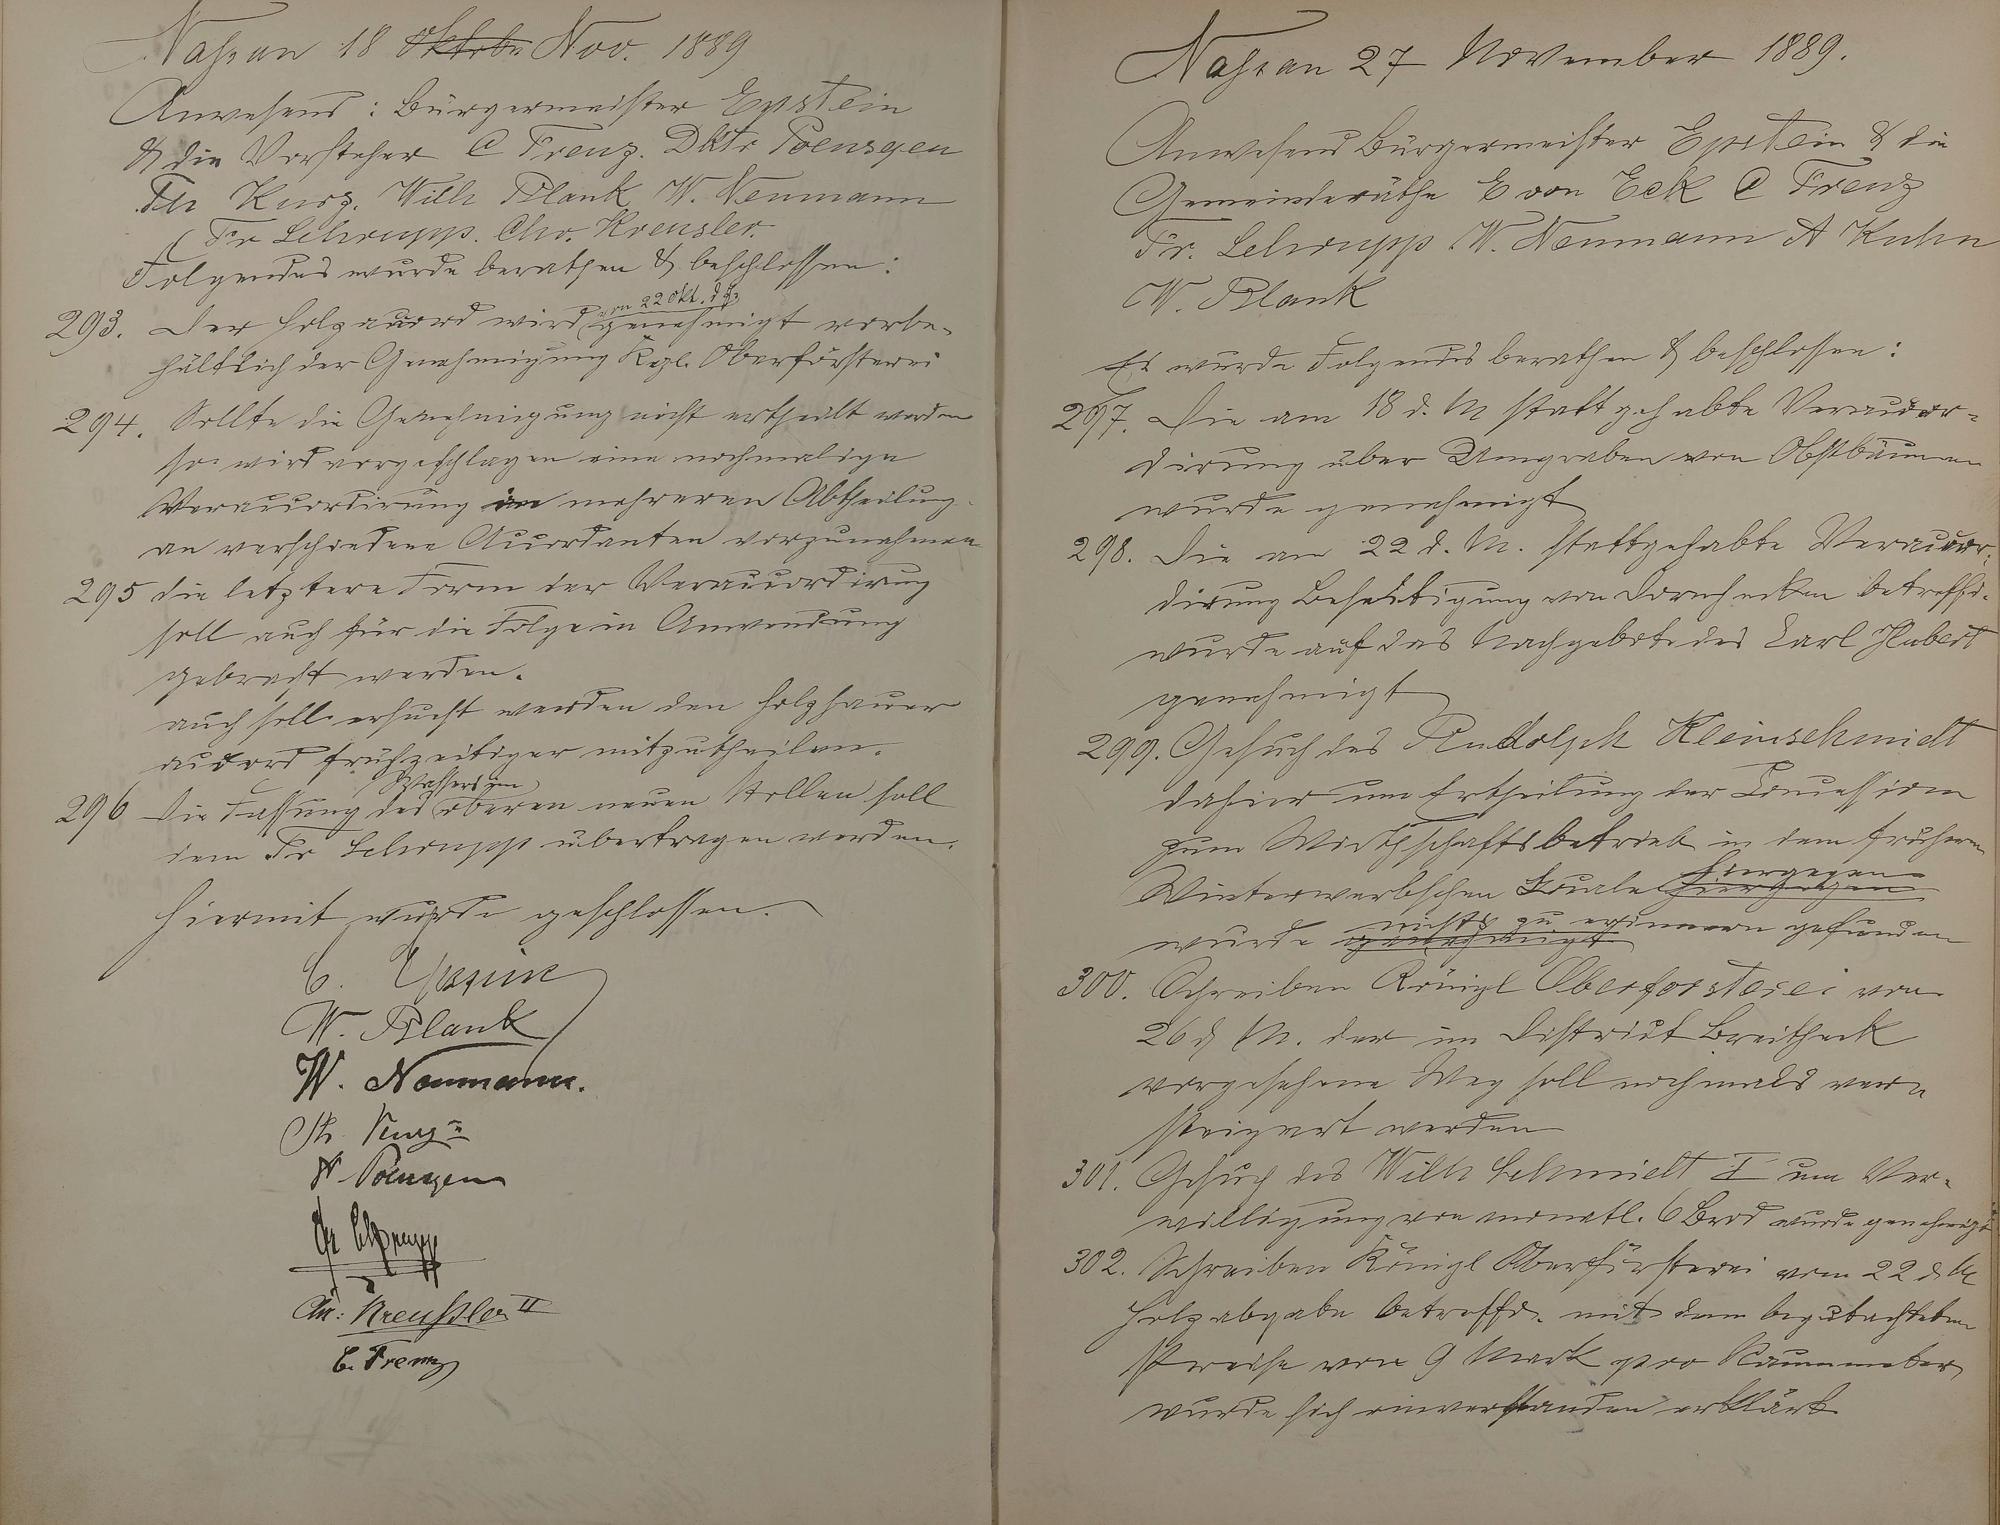 Nassau 18 Oktober Nov. 1889
Anwesend: Bürgermeister Epstein
& die Vorsteher C Trenz. Dktr Poensgen
Th Kurz. Wilh Blank W. Neumann
Fr Schrupp. Chr. Kreusler.
Folgendes wurde berathen & beschlossen:
von 22 Okt. d Js
293. Der Holzaccord wird genehmigt vorbe-
hältlich der Genehmigung Kgl. Oberförsterei
294. Sollte die Genehmigung nicht ertheilt werden
so wird vorgeschlagen eine nochmalige
Veraccordirung in mehreren Abtheilung
an verschiedene Accordanten vorzunehmen
295 die letztere Form der Veraccordirung
soll auch für die Folge in Anwendung
gebracht werden.
auch soll ersucht werden den Holzhauer
accord frühzeitiger mitzutheilen.
Wassers im
296 Die Fassung des oberen neuen Stollen soll
dem Fr Schrupp übertragen werden.
Hiermit wurde geschlossen.
C. Epstein
W. Blank
W. Neumann.
Th. Kurz
Poensgen
Fr Schrupp
Chr: Kreußler II
C. Trenz
Nassau 27 November 1889.
Anwesend Bürgermeister Epstein & die
Gemeinderäthe E von Eck C Trenz
Fr. Schrupp W. Neumann A Kuhn
W. Blank
Es wurde Folgendes berathen & beschlossen:
297. Die am 18 d. M stattgehabte Veraccor-
dirung über Umgraben von Obstbäumen
wurde genehmigt
298. Die am 22 d. M. stattgehabte Veraccor-
dirung Beseitigung von Dornhecken betreffd.
wurde auf das Nachgebot des Carl Hubert
genehmigt
299. Gesuch des Rudolph Kleinschmidt
dahier um Ertheilung der Concession
zum Wirthschaftsbetrieb in dem frühern
Winterwerbschen Locale hiergegen
hiergegen
wurde genehmigt
nichts zu erinnern gefunden
300. Schreiben Königl Oberforsterei von
26 d M. der im District Breitheck
vorgesehene Weg soll nochmals ver-
steigert werden
301. Gesuch des Wilh Schmidt I um Ver-
willigung von monatl. 6 Brod wurde genehmigt
302. Schreiben Königl Oberförsterei vom 22 d. M
Holzabgabe betreffd. mit dem begutachteten
Preise von 9 Mark pro Raummeter
wurde sich einverstanden erklärt